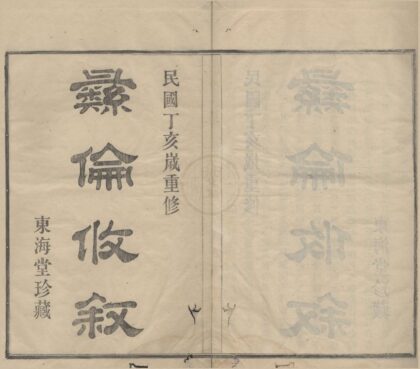 民國丁亥歲重修
彝倫攸敘
東海堂珍藏